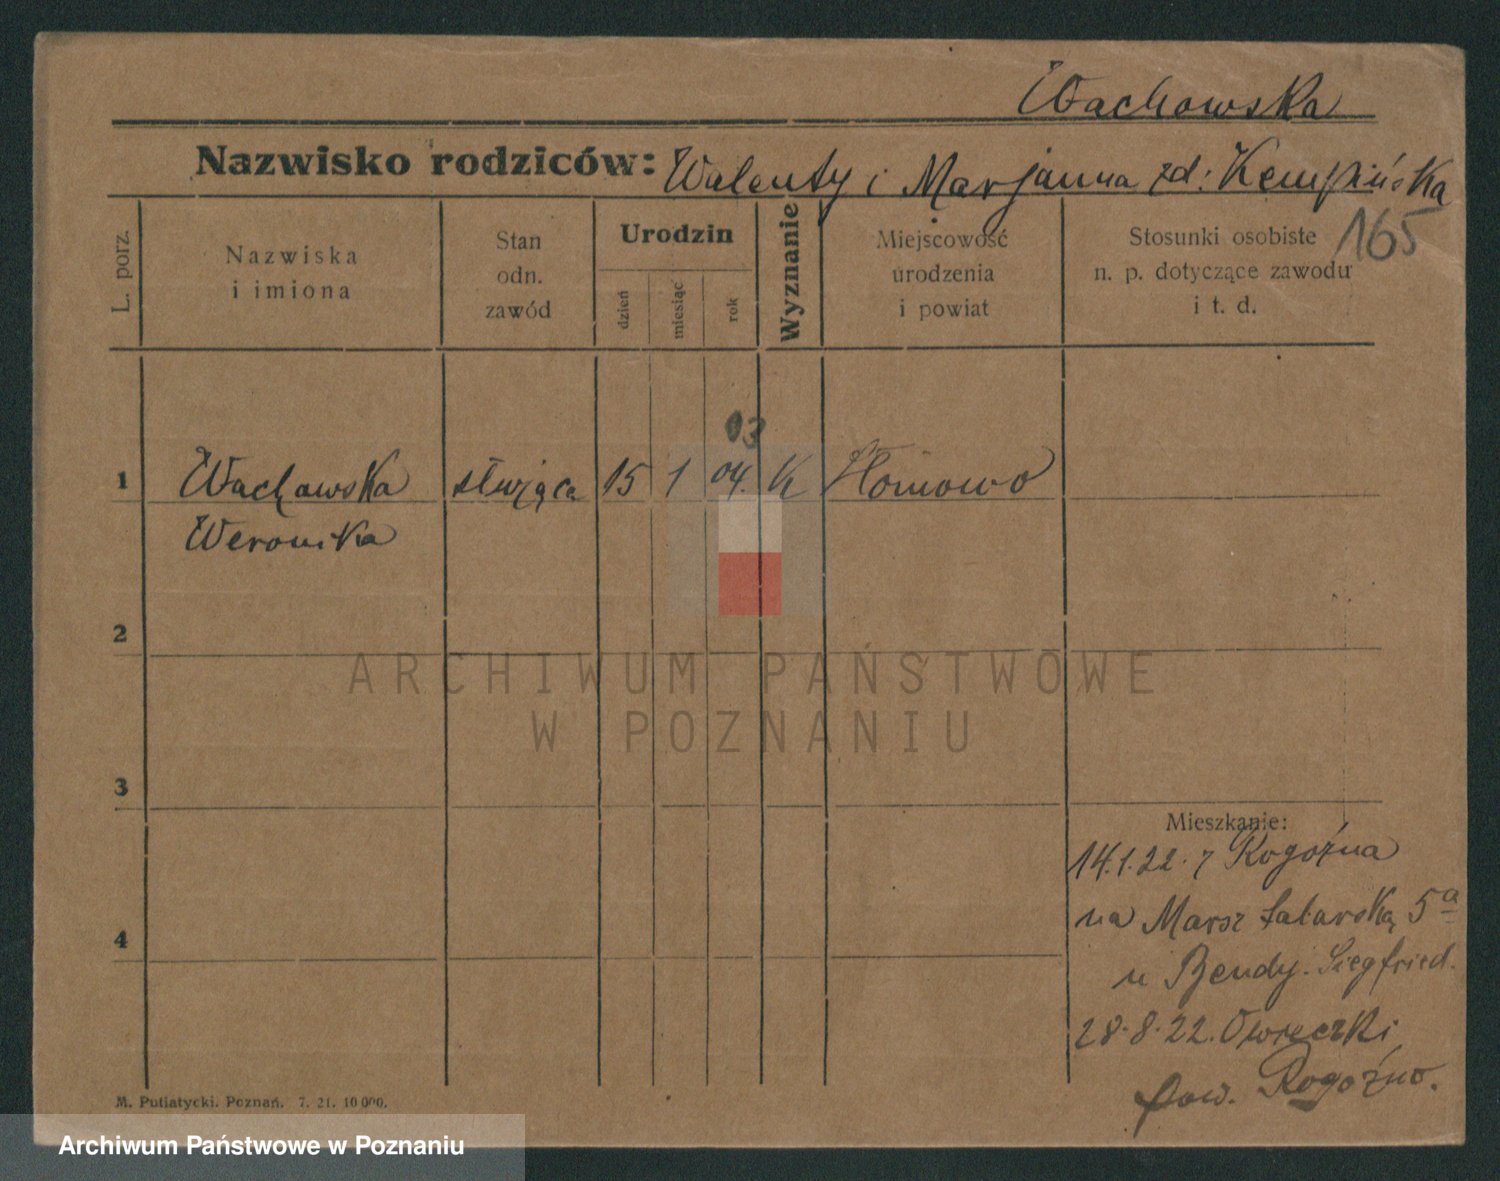 Wachowska
Nazwisko rodziców: Walenty i Marjanna zd: Kempińska
165
L. porz.
Nazwiska
i imiona
Stan
odn.
zawód
Urodzin
dzień
miesiąc
rok
Wyznanie
Miejscowość
urodzenia
i powiat
Stosunki osobiste
n. p. dotyczące zawodu
i t. d.
03
1 Wachowska służąca 15 1 04. K Słomowo
Weronika
2
ARCHIWUM PAŃSTWOWE
W POZNANIU
3
Mieszkanie:
14.1.22. z Rogoźna
na Marsz Talarską 5a
4
u Bendy. Siegfried.
28.8.22. Owieczki
pow. Rogoźno.
M. Putiatycki. Poznań. 7. 21. 10 000.
Archiwum Państwowe w Poznaniu